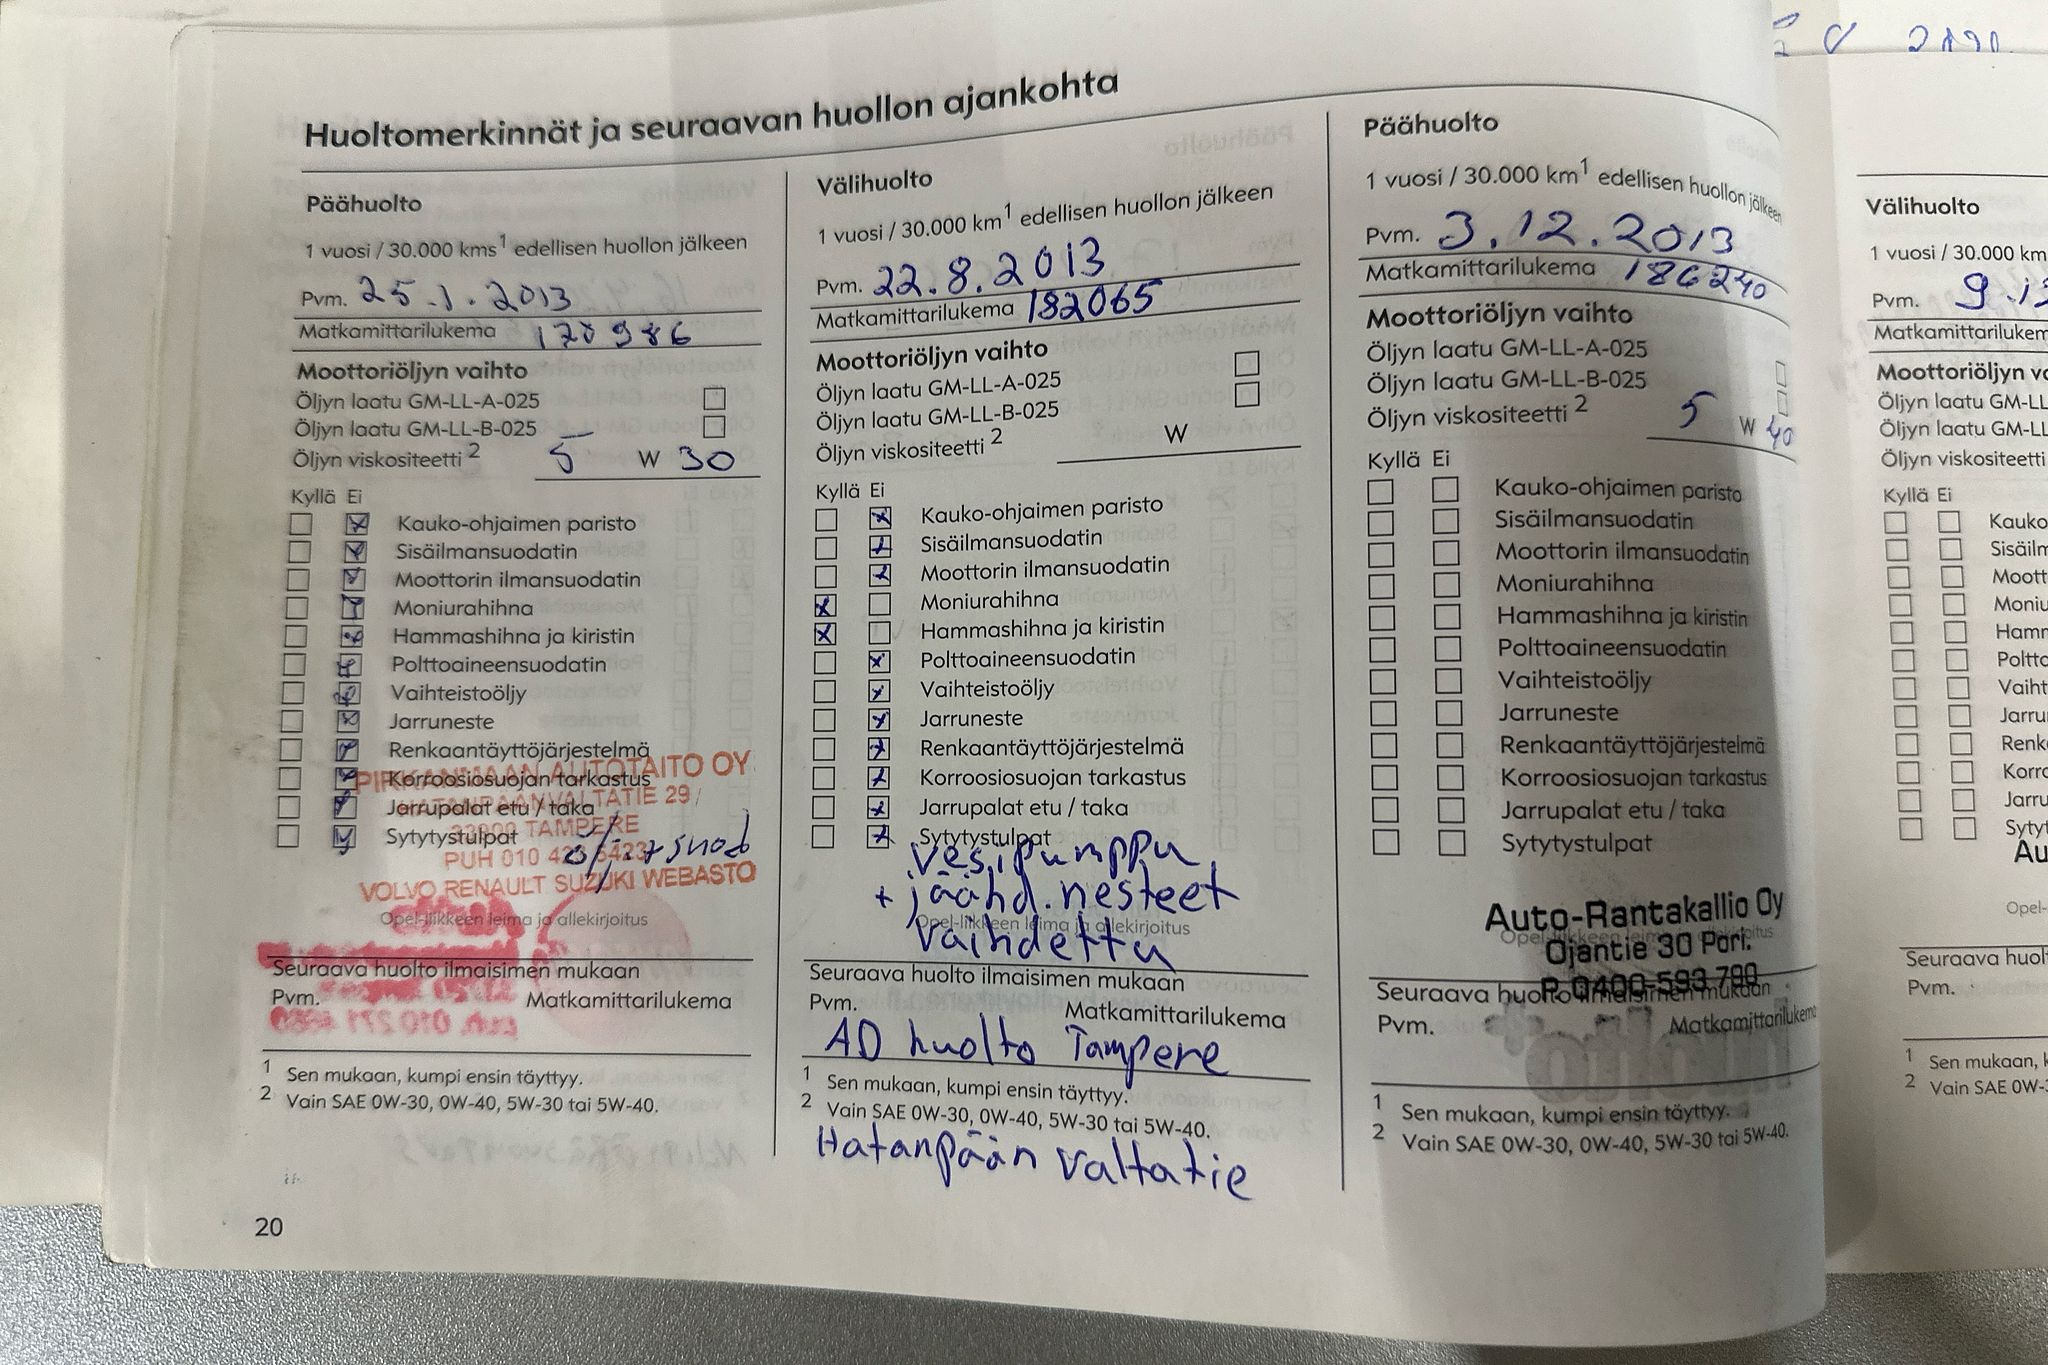 Huoltomerkinnät ja seuraavan huollon ajankohta
Päähuolto
1 vuosi / 30.000 kms1 edellisen huollon jälkeen
Pvm. 25.1.2013
Matkamittarilukema 170986
Moottoriöljyn vaihto
Öljyn laatu GM-LL-A-025
Öljyn laatu GM-LL-B-025
Öljyn viskositeetti 2 5 W 30
Kyllä Ei
Kauko-ohjaimen paristo
Sisäilmansuodatin
Moottorin ilmansuodatin
Moniurahihna
Hammashihna ja kiristin
Polttoaineensuodatin
Vaihteistoöljy
Jarruneste
Renkaantäyttöjärjestelmä
Korroosiosuojan tarkastus
Jarrupalat etu / taka
Sytytystulpat
PIRKANMAAN AUTOTAITO OY
HATANPÄÄNVALTATIE 29
33900 TAMPERE
PUH 010 423 5423
VOLVO RENAULT SUZUKI WEBASTO
Opel-liikkeen leima ja allekirjoitus
Seuraava huolto ilmaisimen mukaan
Pvm. Matkamittarilukema
1 Sen mukaan, kumpi ensin täyttyy.
2 Vain SAE 0W-30, 0W-40, 5W-30 tai 5W-40.
20
Välihuolto
1 vuosi / 30.000 km1 edellisen huollon jälkeen
Pvm. 22.8.2013
Matkamittarilukema 182065
Moottoriöljyn vaihto
Öljyn laatu GM-LL-A-025
Öljyn laatu GM-LL-B-025
Öljyn viskositeetti 2 W
Kyllä Ei
Kauko-ohjaimen paristo
Sisäilmansuodatin
Moottorin ilmansuodatin
Moniurahihna
Hammashihna ja kiristin
Polttoaineensuodatin
Vaihteistoöljy
Jarruneste
Renkaantäyttöjärjestelmä
Korroosiosuojan tarkastus
Jarrupalat etu / taka
Sytytystulpat
vesipumppu
+ jäähd. nesteet
Opel-liikkeen leima ja allekirjoitus
vaihdettu
Seuraava huolto ilmaisimen mukaan
Pvm. Matkamittarilukema
AD huolto Tampere
1 Sen mukaan, kumpi ensin täyttyy.
2 Vain SAE 0W-30, 0W-40, 5W-30 tai 5W-40.
Hatanpään valtatie
Päähuolto
1 vuosi / 30.000 km1 edellisen huollon jälkeen
Pvm. 3.12.2013
Matkamittarilukema 186240
Moottoriöljyn vaihto
Öljyn laatu GM-LL-A-025
Öljyn laatu GM-LL-B-025
Öljyn viskositeetti 2 5 W 40
Kyllä Ei
Kauko-ohjaimen paristo
Sisäilmansuodatin
Moottorin ilmansuodatin
Moniurahihna
Hammashihna ja kiristin
Polttoaineensuodatin
Vaihteistoöljy
Jarruneste
Renkaantäyttöjärjestelmä
Korroosiosuojan tarkastus
Jarrupalat etu / taka
Sytytystulpat
Auto-Rantakallio Oy
Opel-liikkeen leima ja allekirjoitus
Ojantie 30 Pori.
P. 0400-593 790
Seuraava huolto ilmaisimen mukaan
Pvm. Matkamittarilukema
1 Sen mukaan, kumpi ensin täyttyy.
2 Vain SAE 0W-30, 0W-40, 5W-30 tai 5W-40.
Välihuolto
1 vuosi / 30.000 km
Pvm. 9.
Matkamittarilukem
Moottoriöljyn va
Öljyn laatu GM-LL
Öljyn laatu GM-LL
Öljyn viskositeetti
Kyllä Ei
Kauko
Sisäilm
Moott
Moniu
Hamm
Poltto
Vaiht
Jarru
Renk
Korro
Jarru
Syty
Au
Opel-
Seuraava huol
Pvm.
1 Sen mukaan, k
2 Vain SAE 0W-3